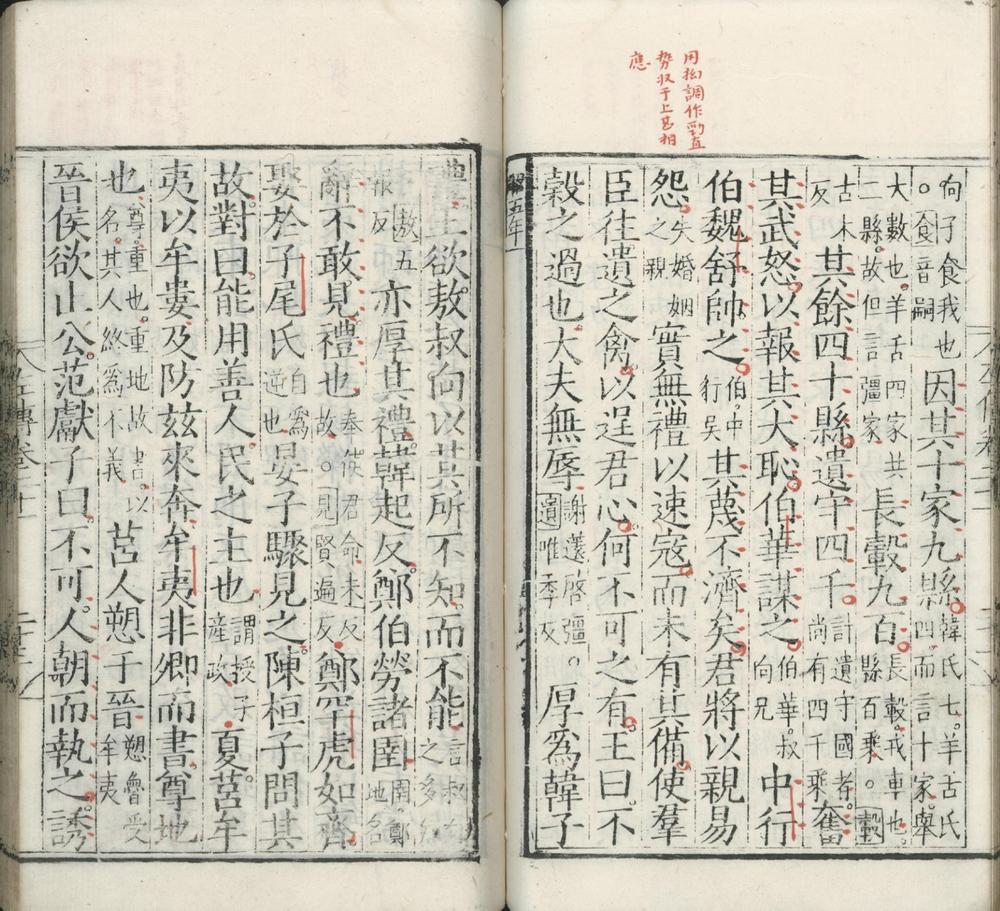 用拗調作勁直
勢収于上甚相
應
向子食我也○食音嗣因其十家九縣韓氏七羊舌氏四而言十家舉
大數也羊舌四家共二縣故但言彊家長轂九百長轂戎車也縣百乘○轂
古木反其餘四十縣遺守四千計遺守國者尚有四千乘奮
其武怒以報其大恥伯華謀之伯華叔向兄中行
伯魏舒帥之伯中行吳其蔑不濟矣君將以親易
怨失婚姻之親實無禮以速寇而未有其備使羣
臣往遺之禽以逞君心何不可之有王曰不
穀之過也大夫無辱謝薳啓彊○遺唯季反厚爲韓子
昭五年
禮王欲敖叔向以其所不知而不能言叔向之多知
敖五報反亦厚其禮韓起反鄭伯勞諸圉圉鄭地名
辭不敢見禮也奉使君命未反故○見賢遍反鄭罕虎如齊
娶於子尾氏自爲逆也晏子驟見之陳桓子問其
故對曰能用善人民之主也謂授子產政夏莒牟
夷以牟婁及防茲來奔牟夷非卿而書尊地
也尊重也重地故書以名其人終爲不義莒人愬于晉愬魯受牟夷
晉侯欲止公范獻子曰不可人朝而執之誘